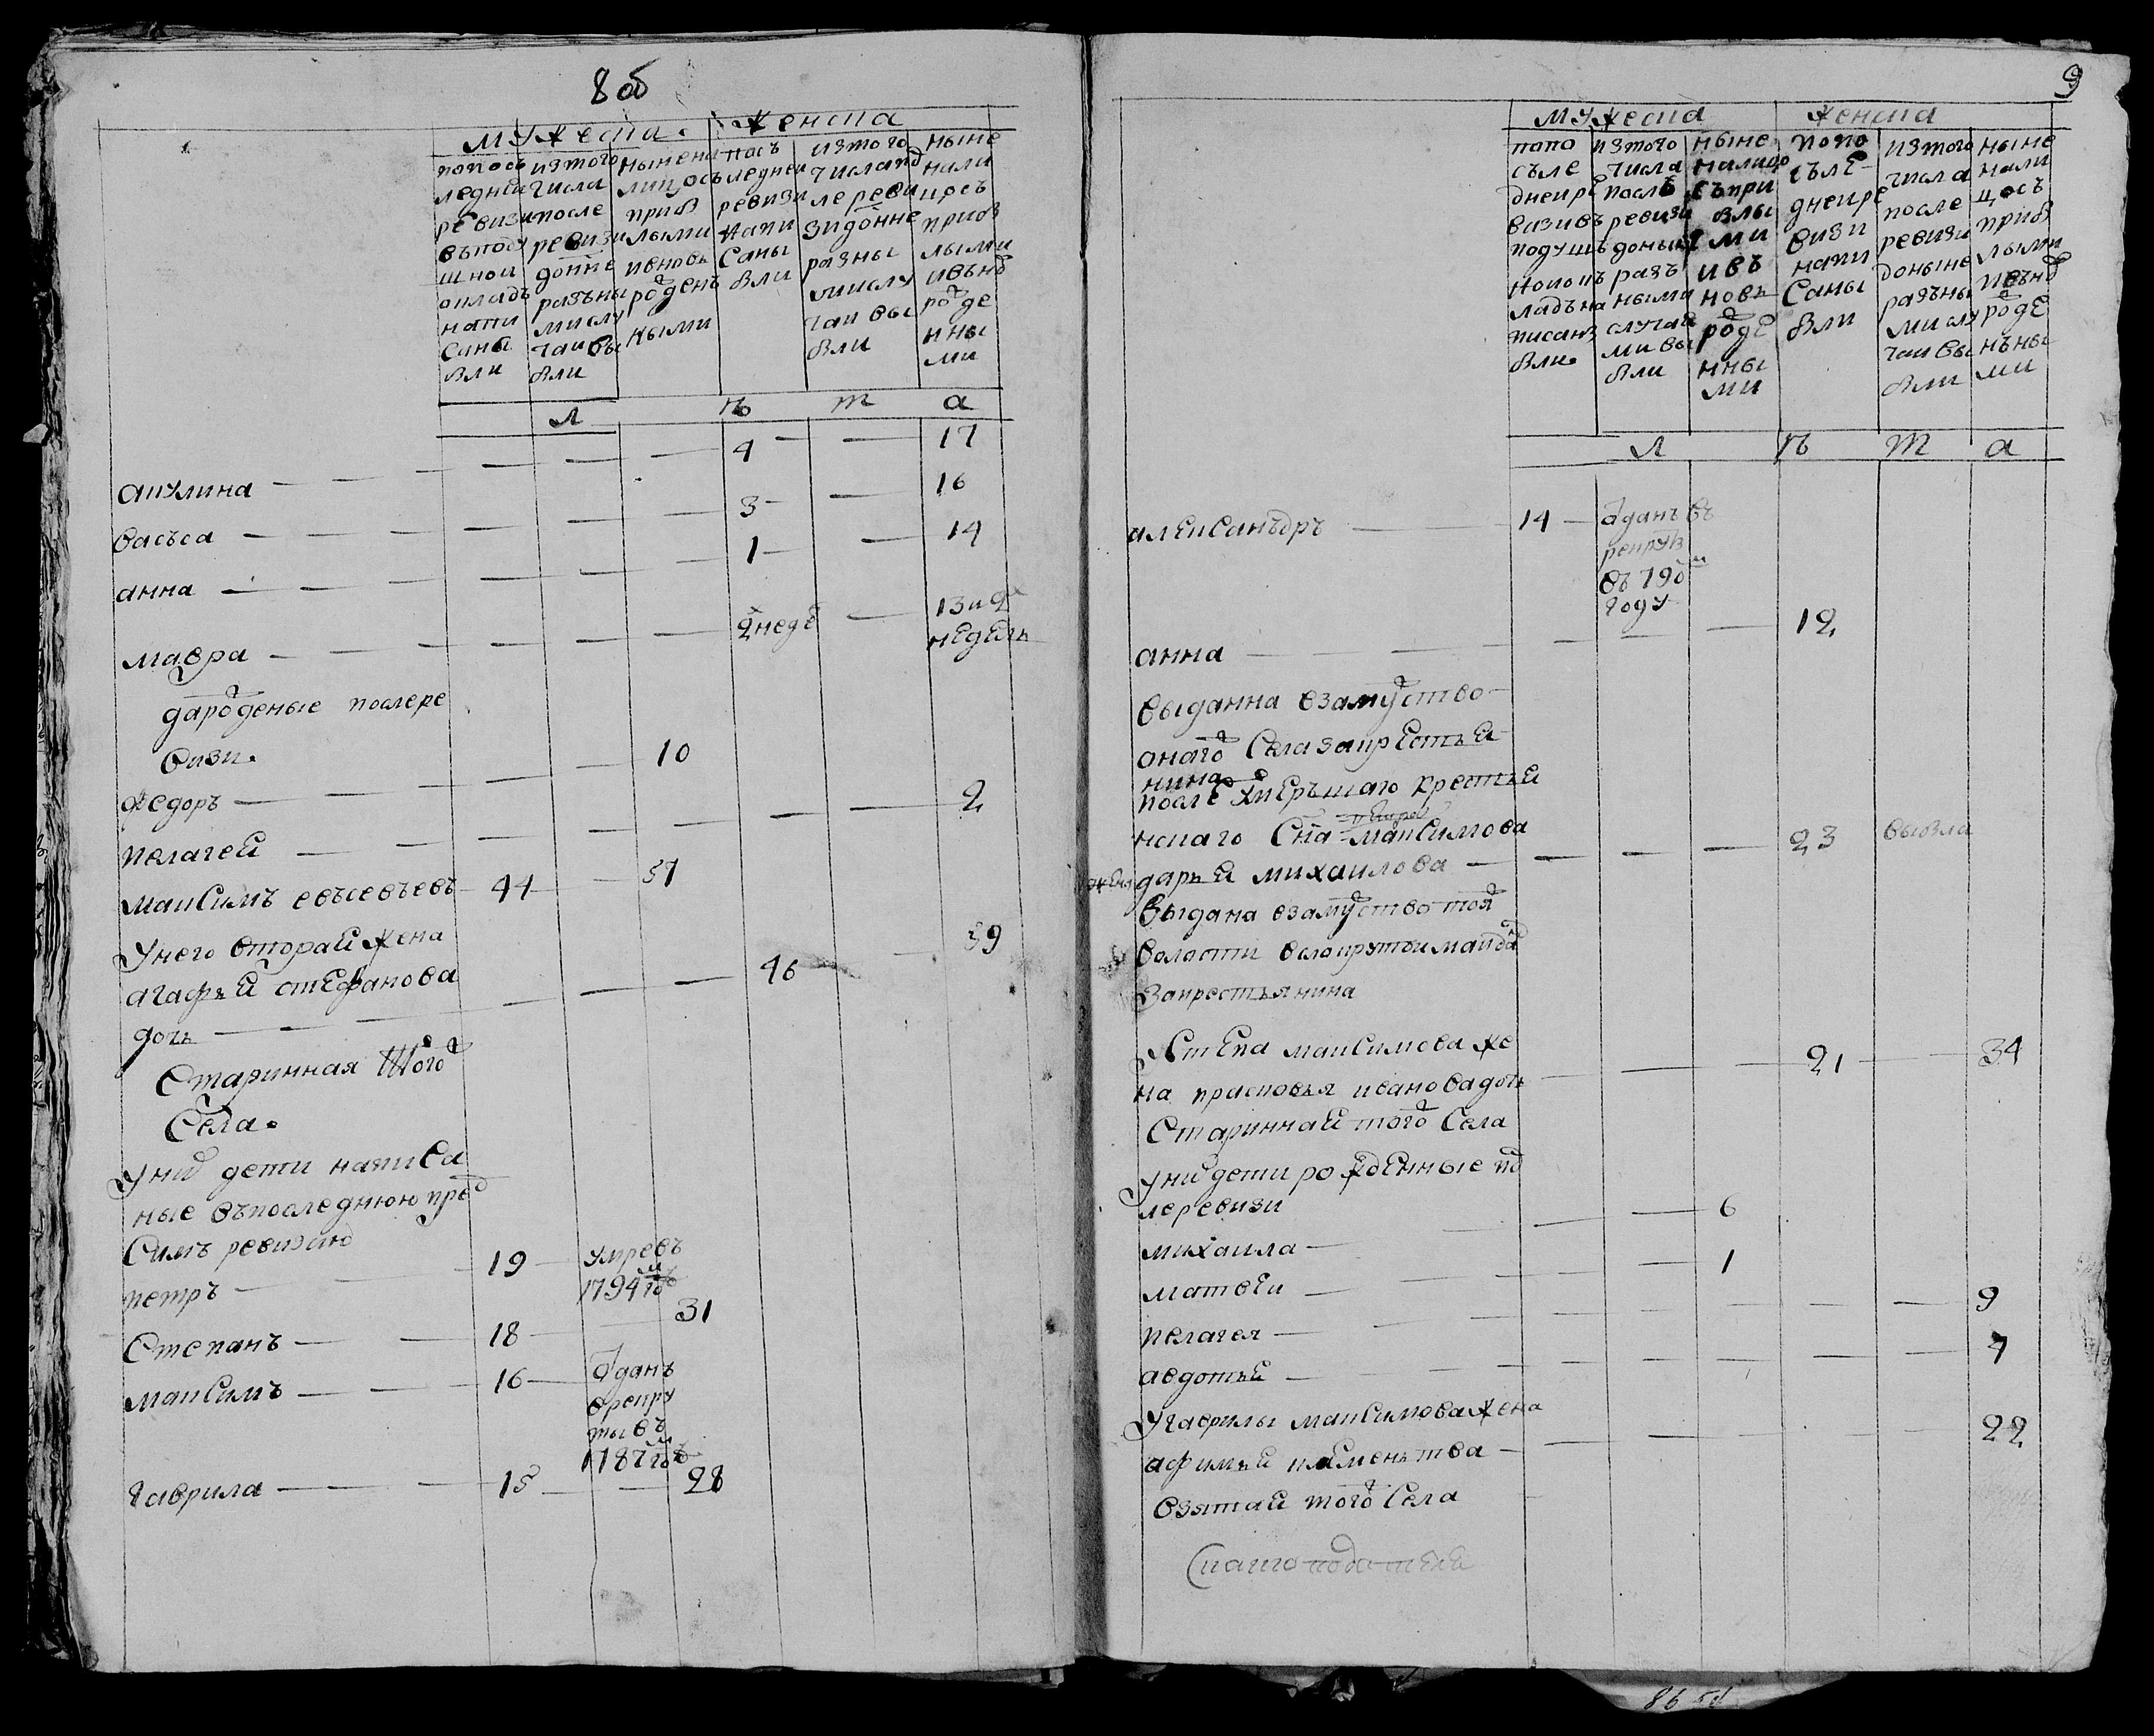 8 об
мужеска. женска
попосъ ледней ревизи въподу шнои окладъ напи саны были
изтого числа после ревизи доныне разъны ми слу чаи вы были
ныне на лицосъ прибылыми ивновь рожденъ ными
посъ ледней ревизи напи саны были
изтого числа по сле реви зи доныне разны ми слу чаи вы были
ныне нали цосъ приб лыми ивънов рожде нны ми
л ѣ т а
акулина — 4 — 17
васъса — 3 — 16
анна — 1 — 14
мавра — 2 неде — 13 и 2 неделъ
да рожденые после ре
визи.
федоръ — 10
пелагея — 2
максимъ евъсевъевъ 44 — 57
унего вторая жена — 39
агафья стефанова — 46
дочь —
Старинная того ж
Села.
уних дети написа
ные въпоследнюю пред
симъ ревизию
петръ — 19 — умре въ
1794 м год
Степанъ — 18 — 31
максимъ — 16 — отданъ
врекру
ты въ
1787 м год
гаврила — 15 — 28
9
мужеска женска
попо съле дней ре визи въ подушъ номокъ ладъ на писаны были.
изтого числа послѣ ревизи доныне разъ ными случая ми вы были
ныне налицо съпри былы ми ивъ новь рожде нны ми
попо съле дней ре визи напи саны были
изтого числа после ревизи доныне разъны ми слу чаи вы были
ныне нали цосъ приб лыми ивънов рожде нъны ми
л ѣ т а
александръ — 14 — отданъ въ
рекрут
въ 790 м
году
анна — 12
выданна взамужство
онагож села закрестья
нина
после умеръшаго крестья
петра
нскаго сна максимова
жена дарья михаилова — 23 выбла
выдана взамужство тояж
волости
закрестьянина
Устепа максимова же
на прасковья иванова дочь — 21 — 34
Старинная тогож села
уних дети рожденные по
слеревизи
михаила — 6
матвеи — 1
пелагея — 9
авдотья — 4
угаврилы максимова жена
афимья — 22
взятая тогож села
86 об